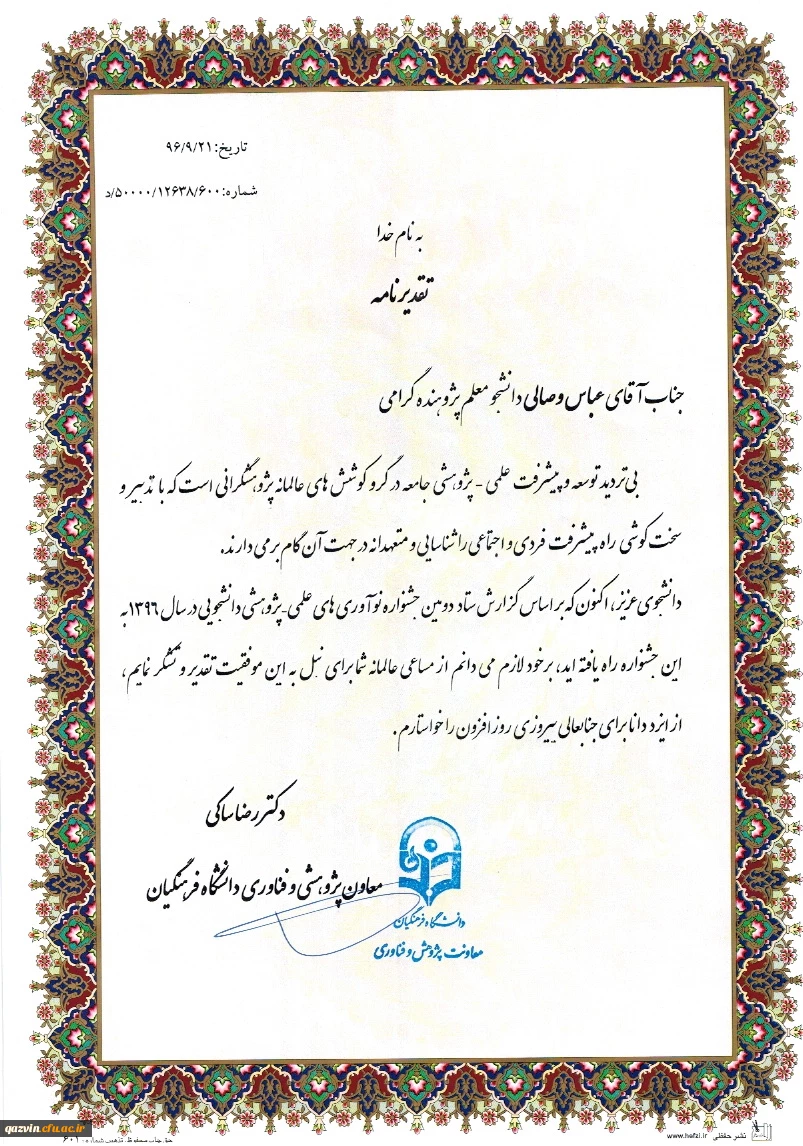 تاریخ: ۹۶/۹/۲۱
شماره: ۵۰۰۰۰/۱۲۶۳۸/۶۰۰/د
به نام خدا
تقدیرنامه
جناب آقای عباس وصالی دانشجو معلم پژوهنده گرامی
بی تردید توسعه و پیشرفت علمی - پژوهشی جامعه در گرو کوشش های عالمانه پژوهشگرانی است که با تدبیر و
سخت کوشی راه پیشرفت فردی و اجتماعی را شناسایی و متعهدانه در جهت آن گام بر می دارند.
دانشجوی عزیز، اکنون که بر اساس گزارش ستاد دومین جشنواره نوآوری های علمی-پژوهشی دانشجویی در سال ۱۳۹۶ به
این جشنواره راه یافته اید، بر خود لازم می دانم از مساعی عالمانه شما برای نیل به این موفقیت تقدیر و تشکر نمایم،
از ایزد دانا برای جنابعالی پیروزی روز افزون را خواستارم.
دکتر رضا ساکی
معاون پژوهشی و فناوری دانشگاه فرهنگیان
دانشگاه فرهنگیان
معاونت پژوهش و فناوری
qazvin.cfu.ac.ir
حق چاپ محفوظ. تذهیب شماره: ۶۰۱
www.hefzi.ir نشر حفظی